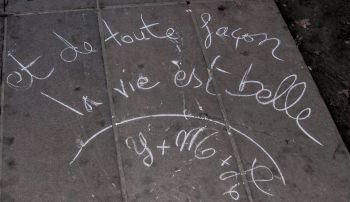 et de toute façon
la vie est belle
y + M6 +